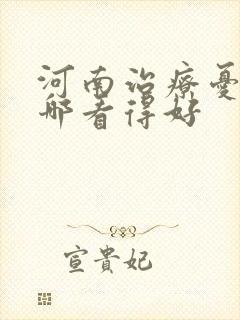 河南治療憂
哪看得好
宣貴妃